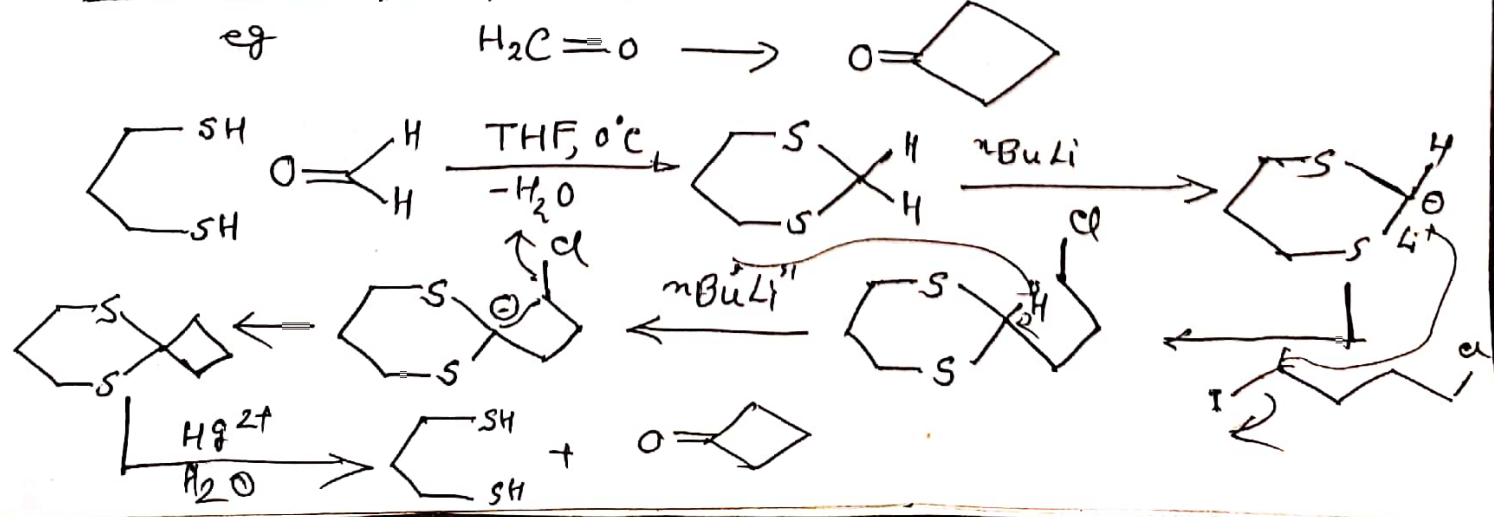 eg H₂C=O → O=
SH SH O= H H THF, 0°C -H₂O S S H H ⁿBuLi S S H ⊖ Li⁺
S S S S ⊖ Cl nBuLi S S H Cl I Cl
Hg²⁺ H₂O SH SH + O=